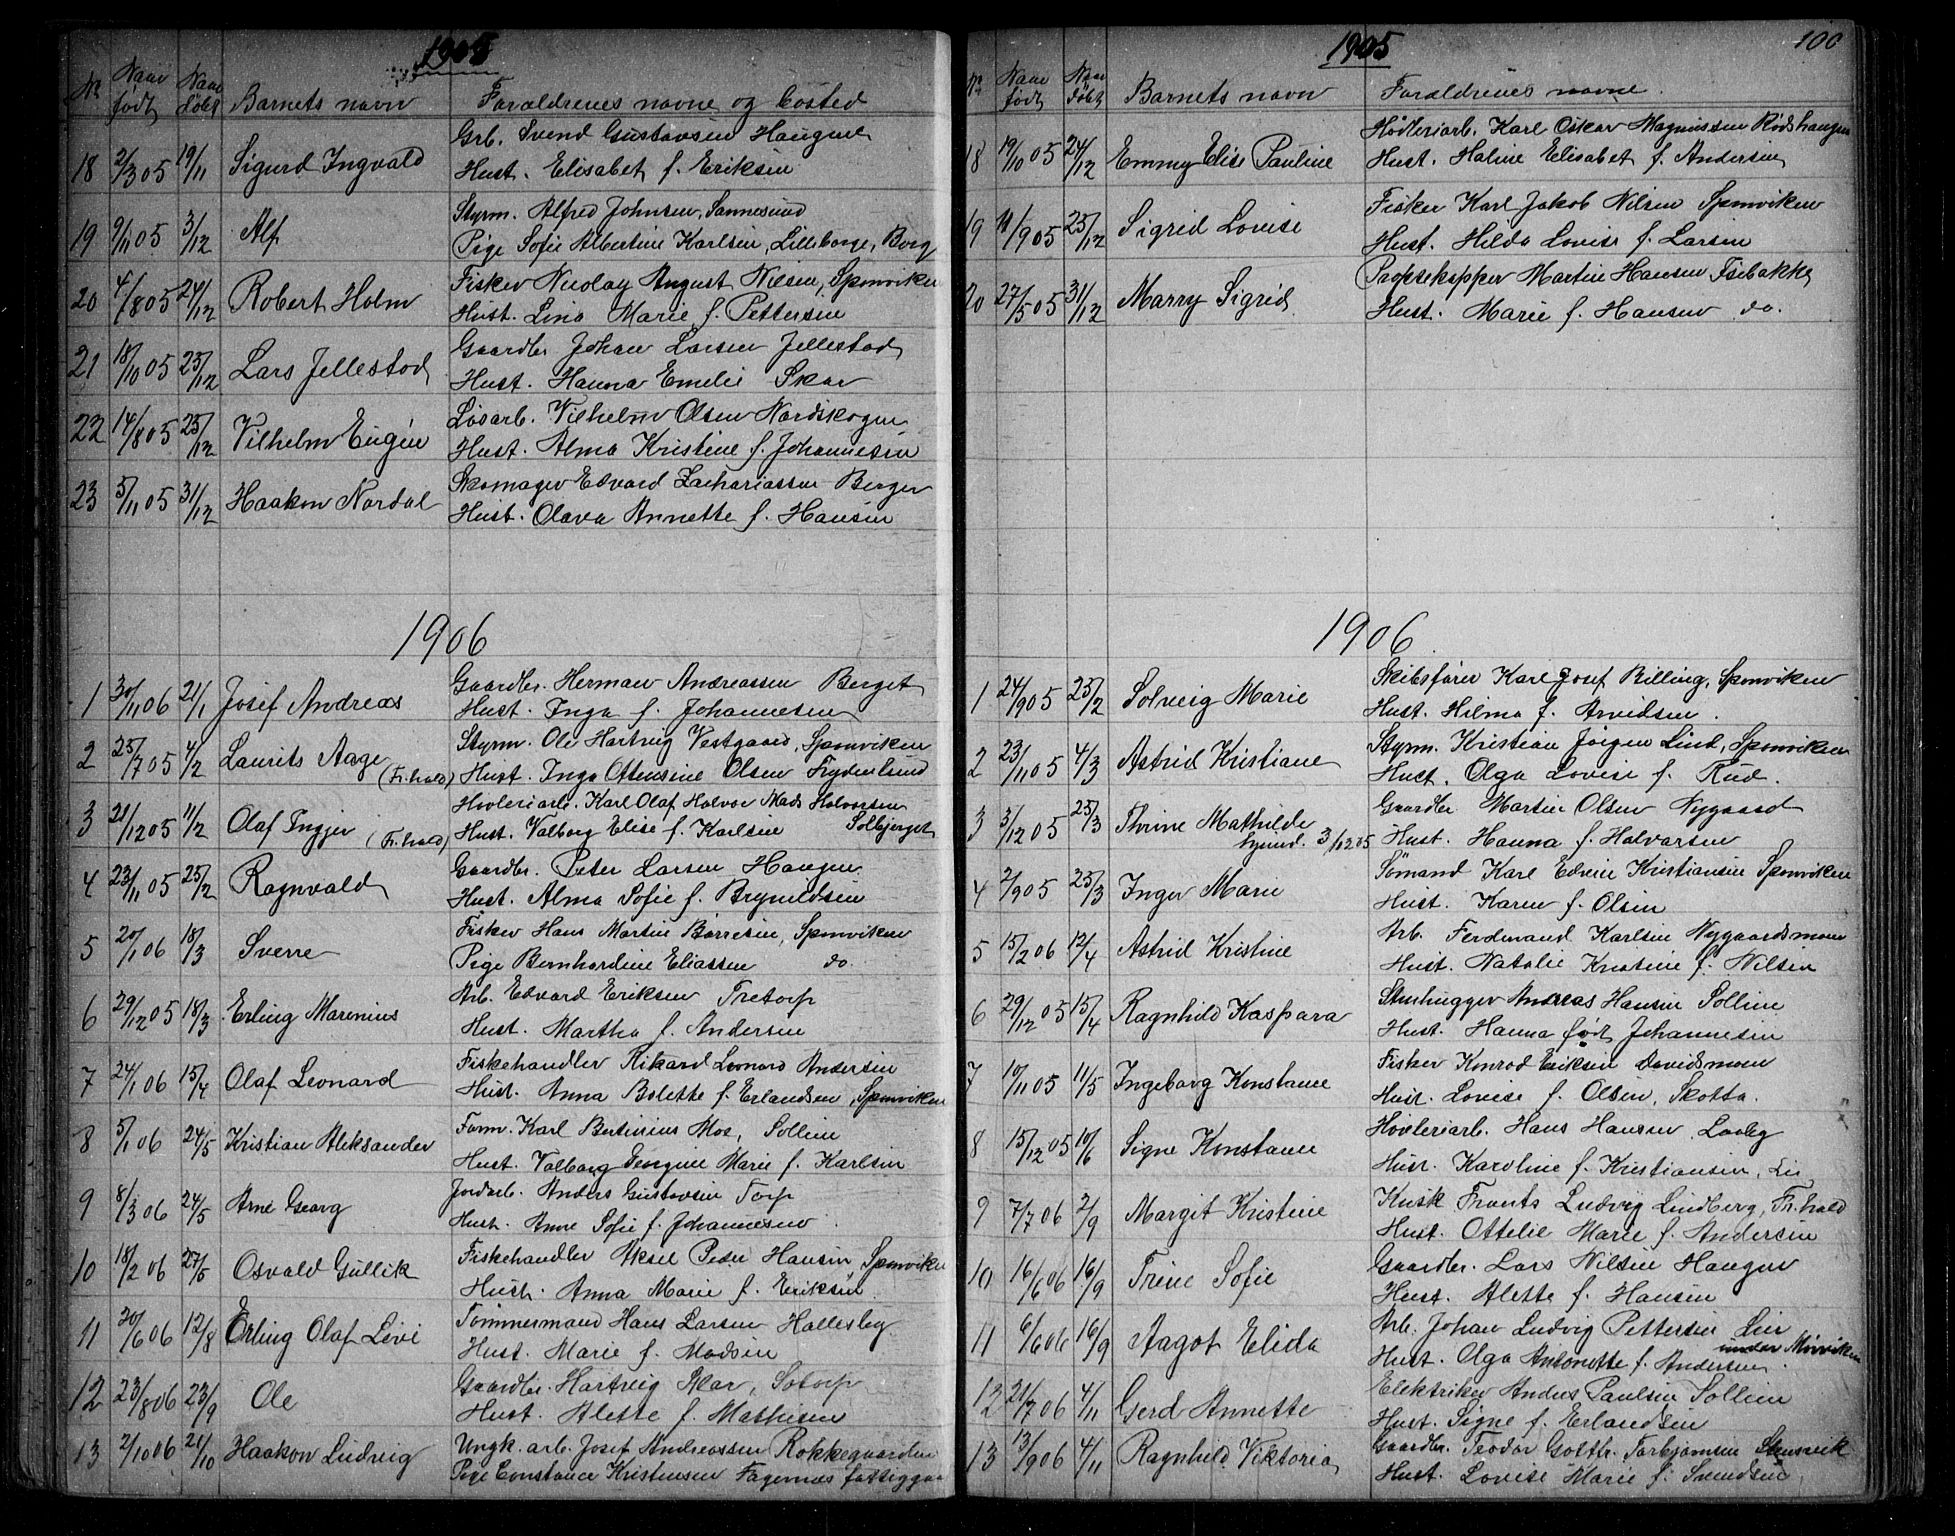 1905
No Naar født Naar døbt Barnets navn Forældrenes navne og bosted
Grb. Svend Gustavsen Haugene
18 2/3 05 19/11 Sigurd Ingvald Hust. Elisabet f. Eriksen
Styrm. Alfred Johnsen, Sannesund
19 9/11 05 3/12 Alf Pige Sofie Albertine Karlsen, Lilleborge, Borg
Fisker Nicolay August Nilsen, Sponviken
20 4/8 05 24/12 Robert Holm Hust. Lina Marie f. Pettersen
Gaardbr. Johan Larsen Jellestad
21 18/10 05 25/12 Lars Jellestad Hust. Hanna Emelie Skar
Løsarb. Vilhelm Olsen Nordskogen
22 14/8 05 25/12 Vilhelm Eugen Hust. Alma Kristine f. Johannesen
Skomager Edvard Zachariassen Berger
23 5/11 05 31/12 Haakon Nordal Hust. Olava Annette f. Hansen
1906
Gaardbr. Herman Andreassen Berget
1 30/11 06 21/1 Josef Andreas Hust. Inga f. Johannesen
Styrm. Ole Hartvig Vestgaard, Sponviken
2 25/7 05 4/2 Laurits Aage (Fr.hald) Hust. Inga Ottensine Olsen Frydenlund
Høvleriarb. Karl Olaf Halvor Mads Halvorsen
3 21/12 05 11/2 Olaf Ingjer (Fr.hald) Hust. Valborg Elise f. Karlsen Solbjerget
Gaardbr. Peter Larsen Haugen
4 23/11 05 25/2 Ragnvald Hust. Alma Sofie f. Brynildsen
Fisker Hans Martin Børresen, Sponviken
5 20/1 06 18/3 Sverre Pige Bernhardine Eliassen do.
Arb. Edvard Eriksen Tretorp
6 29/12 05 18/3 Erling Marenius Hust. Martha f. Andersen
Fiskehandler Rikard Leonard Andersen
7 24/1 06 15/4 Olaf Leonard Hust. Anna Bolette f. Erlandsen, Sponviken
Form. Karl Bertinius Moe, Sollien
8 5/1 06 24/5 Kristian Aleksander Hust. Valborg Georgine Marie f. Karlsen
Jordarb. Anders Gustavsen Torp
9 8/3 06 24/5 Arne Georg Hust. Anne Sofie f. Johannesen
Fiskehandler Aksel Peder Hansen, Sponviken
10 18/2 06 27/5 Osvald Gullik Hust. Anna Marie f. Eriksen
Tømmermand Hans Larsen Hallesby
11 20/6 06 12/8 Erling Olaf Levi Hust. Marie f. Madsen
Gaardbr. Hartvig Skar, Sotorp
12 23/8 06 23/9 Ole Hust. Alette f. Mathisen
Ungk. arb. Josef Andreassen Rokkegaarden
13 2/10 06 21/10 Haakon Ludvig Pige Constance Kristensen Fagernæs fattiggaa
1905 100
No Naar født Naar døbt Barnets navn Forældrenes navne.
Høvleriarb. Karl Oskar Magnussen Rødshaugen
18 19/10 05 24/12 Emmy Elise Pauline Hust. Haline Elisabet f. Andersen
Fisker Karl Jakob Nilsen Sponviken
19 11/9 05 25/12 Sigrid Lovise Hust. Hilda Lovise f. Larsen
Propsekapper Martin Hansen Isebakke
20 27/5 05 31/12 Marry Sigrid Hust. Marie f. Hansen do.
1906
Skibsfører Karl Josef Billing, Sponviken
1 24/9 05 25/2 Solveig Marie Hust. Hilma f. Arvidsen.
Styrm. Kristian Jørgen Lind, Sponviken
2 23/11 05 4/3 Astrid Kristiane Hust. Olga Lovise f. Rud.
Gaardbr Martin Olsen Nygaard
3 3/12 05 25/3 Thrine Mathilde Hust. Hanna f. Halvorsen
3/12 05
Sømand Karl Edvin Kristiansen Sponviken
4 2/9 05 25/3 Inger Marie Hust. Karen f. Olsen
Arb. Ferdinand Karlsen Nygaardsmoen
5 15/2 06 12/4 Astrid Kristine Hust. Natalie Kristine f. Nilsen
Stenhugger Andreas Hansen Sollien
6 29/12 05 15/4 Ragnhild Kaspara Hust. Hanna født Johannesen
Fisker Konrad Eriksen Davidsmoen
7 10/11 05 11/5 Ingeborg Konstance Hust. Lovise f. Olsen, Skotta.
Høvleriarb. Hans Hansen Laaby
8 15/12 05 10/6 Signe Konstance Hust. Karoline f. Kristiansen, Lie
Kusk Frants Ludvig Lindberg, Fr.hald
9 7/7 06 2/9 Margit Kristine Hust. Ottelie Marie f. Andersen
Gaardbr. Lars Nilsen Haugen
10 16/6 06 16/9 Trine Sofie Hust. Alette f. Hansen
Arb. Johan Ludvig Pettersen Lien
under Mørviken
11 6/6 06 16/9 Aagot Elida Hust. Olga Antonette f. Andersen.
Elektriker Anders Paulsen Sollien
12 21/7 06 4/11 Gerd Annette Hust. Signe f. Erlandsen
Gaardbr. Teodor Gottfr. Torbjørnsen Stensvik
13 13/9 06 4/11 Ragnhild Viktoria Hust. Lovise Marie f. Svendsen